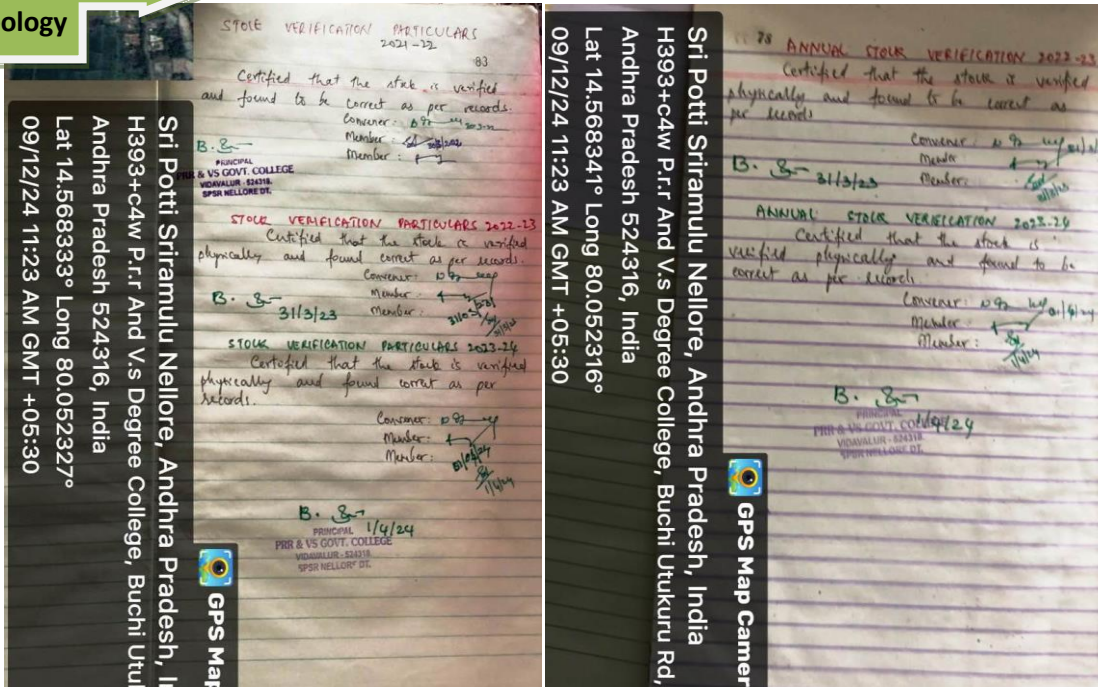 ology
STOCK VERIFICATION PARTICULARS
2021-22
83
Certified that the stock is verified
and found to be correct as per records.
Convener:
Member:
Member:
B.
PRINCIPAL
PRR & VS GOVT. COLLEGE
VIDAVALUR - 524318.
SPSR NELLORE DT.
STOCK VERIFICATION PARTICULARS 2022-23
Certified that the stock is verified
physically and found correct as per records.
Convener:
Member:
Member:
B.
31/3/23
STOCK VERIFICATION PARTICULARS 2023-24
Certified that the stock is verified
physically and found correct as per
records.
Convener:
Member:
Member:
B.
1/4/24
PRINCIPAL
PRR & VS GOVT. COLLEGE
VIDAVALUR - 524318.
SPSR NELLORE DT.
GPS Map
Sri Potti Sriramulu Nellore, Andhra Pradesh, I
H393+c4w P.r.r And V.s Degree College, Buchi Utu
Andhra Pradesh 524316, India
Lat 14.568333° Long 80.052327°
09/12/24 11:23 AM GMT +05:30
88 ANNUAL STOCK VERIFICATION 2022-23
Certified that the stock is verified
physically and found to be correct as
per records
Convener:
Member
Member:
B.
31/3/23
ANNUAL STOCK VERIFICATION 2023-24
Certified that the stock is
verified physically and found to be
correct as per records
Convener:
Member
Member:
B.
1/4/24
PRINCIPAL
PRR & VS GOVT. COLLEGE
VIDAVALUR - 524318
SPSR NELLORE DT.
GPS Map Camer
Sri Potti Sriramulu Nellore, Andhra Pradesh, India
H393+c4w P.r.r And V.s Degree College, Buchi Utukuru Rd,
Andhra Pradesh 524316, India
Lat 14.568341° Long 80.052316°
09/12/24 11:23 AM GMT +05:30